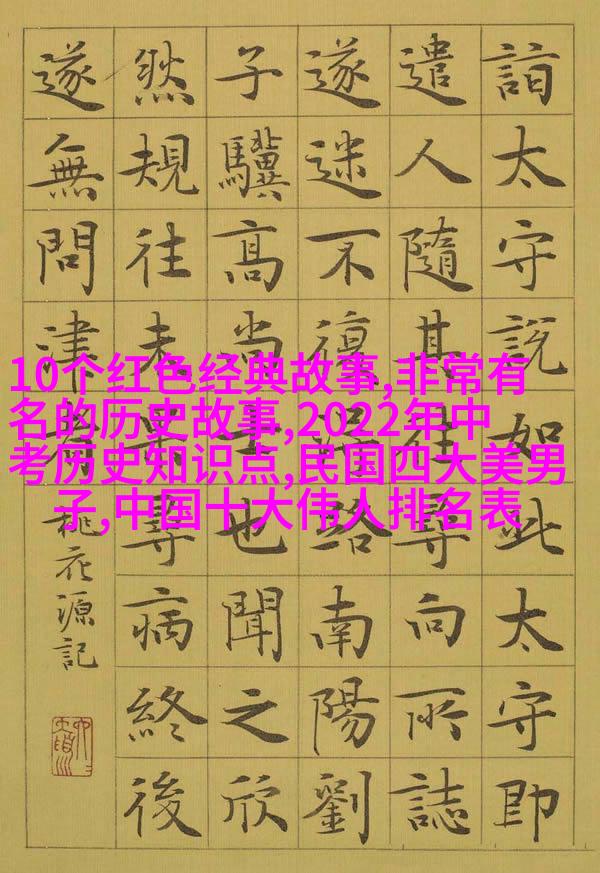 詣太守說如此太守即
遣人隨其往尋向所誌
遂迷不復得路南陽劉
子驥高尚士也聞之欣
然規往未果尋病終後
遂無問津者
桃花源記
10个红色经典故事,非常有
名的历史故事,2022年中
考历史知识点,民国四大美男
子,中国十大伟人排名表